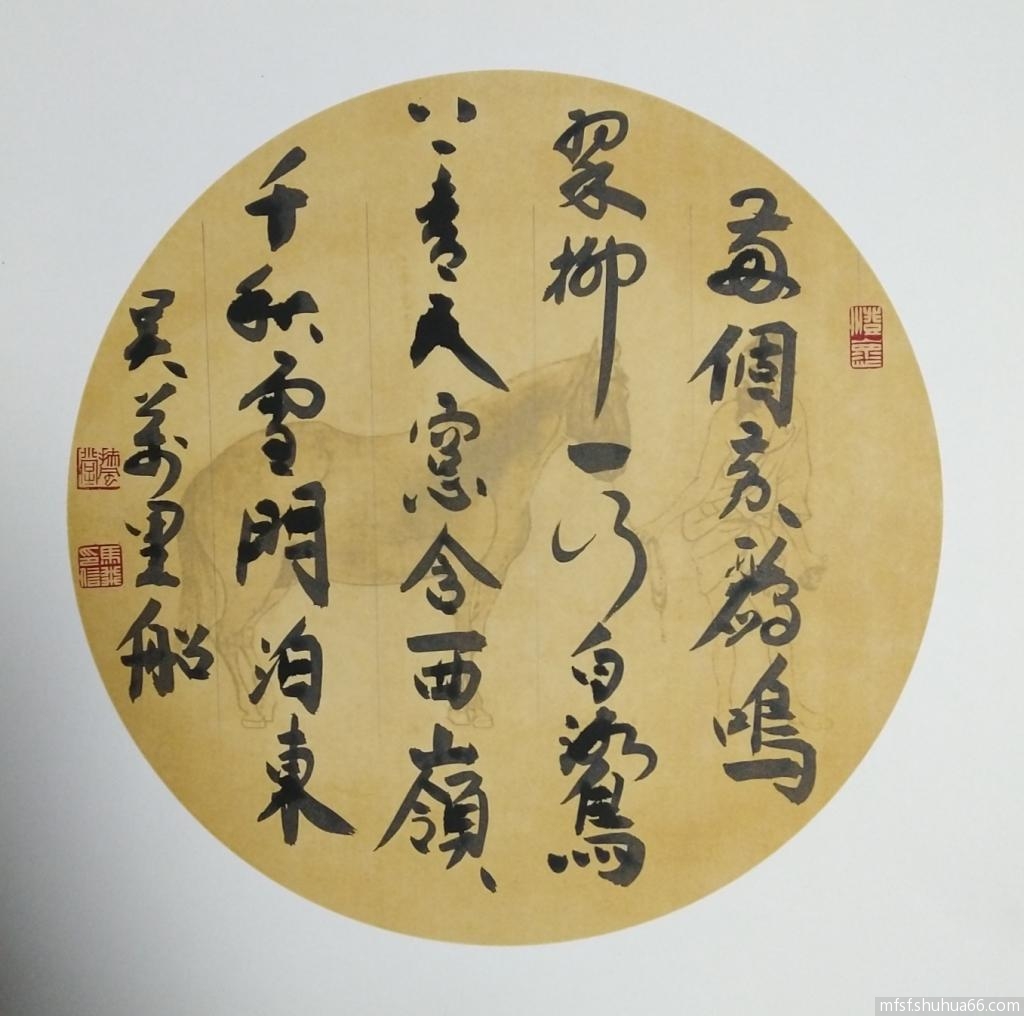 兩個黃鸝鳴
翠柳一行白鷺
上青天窓含西嶺
千秋雪門泊東
吳萬里船
澄
馬
mfsf.shuhua66.com